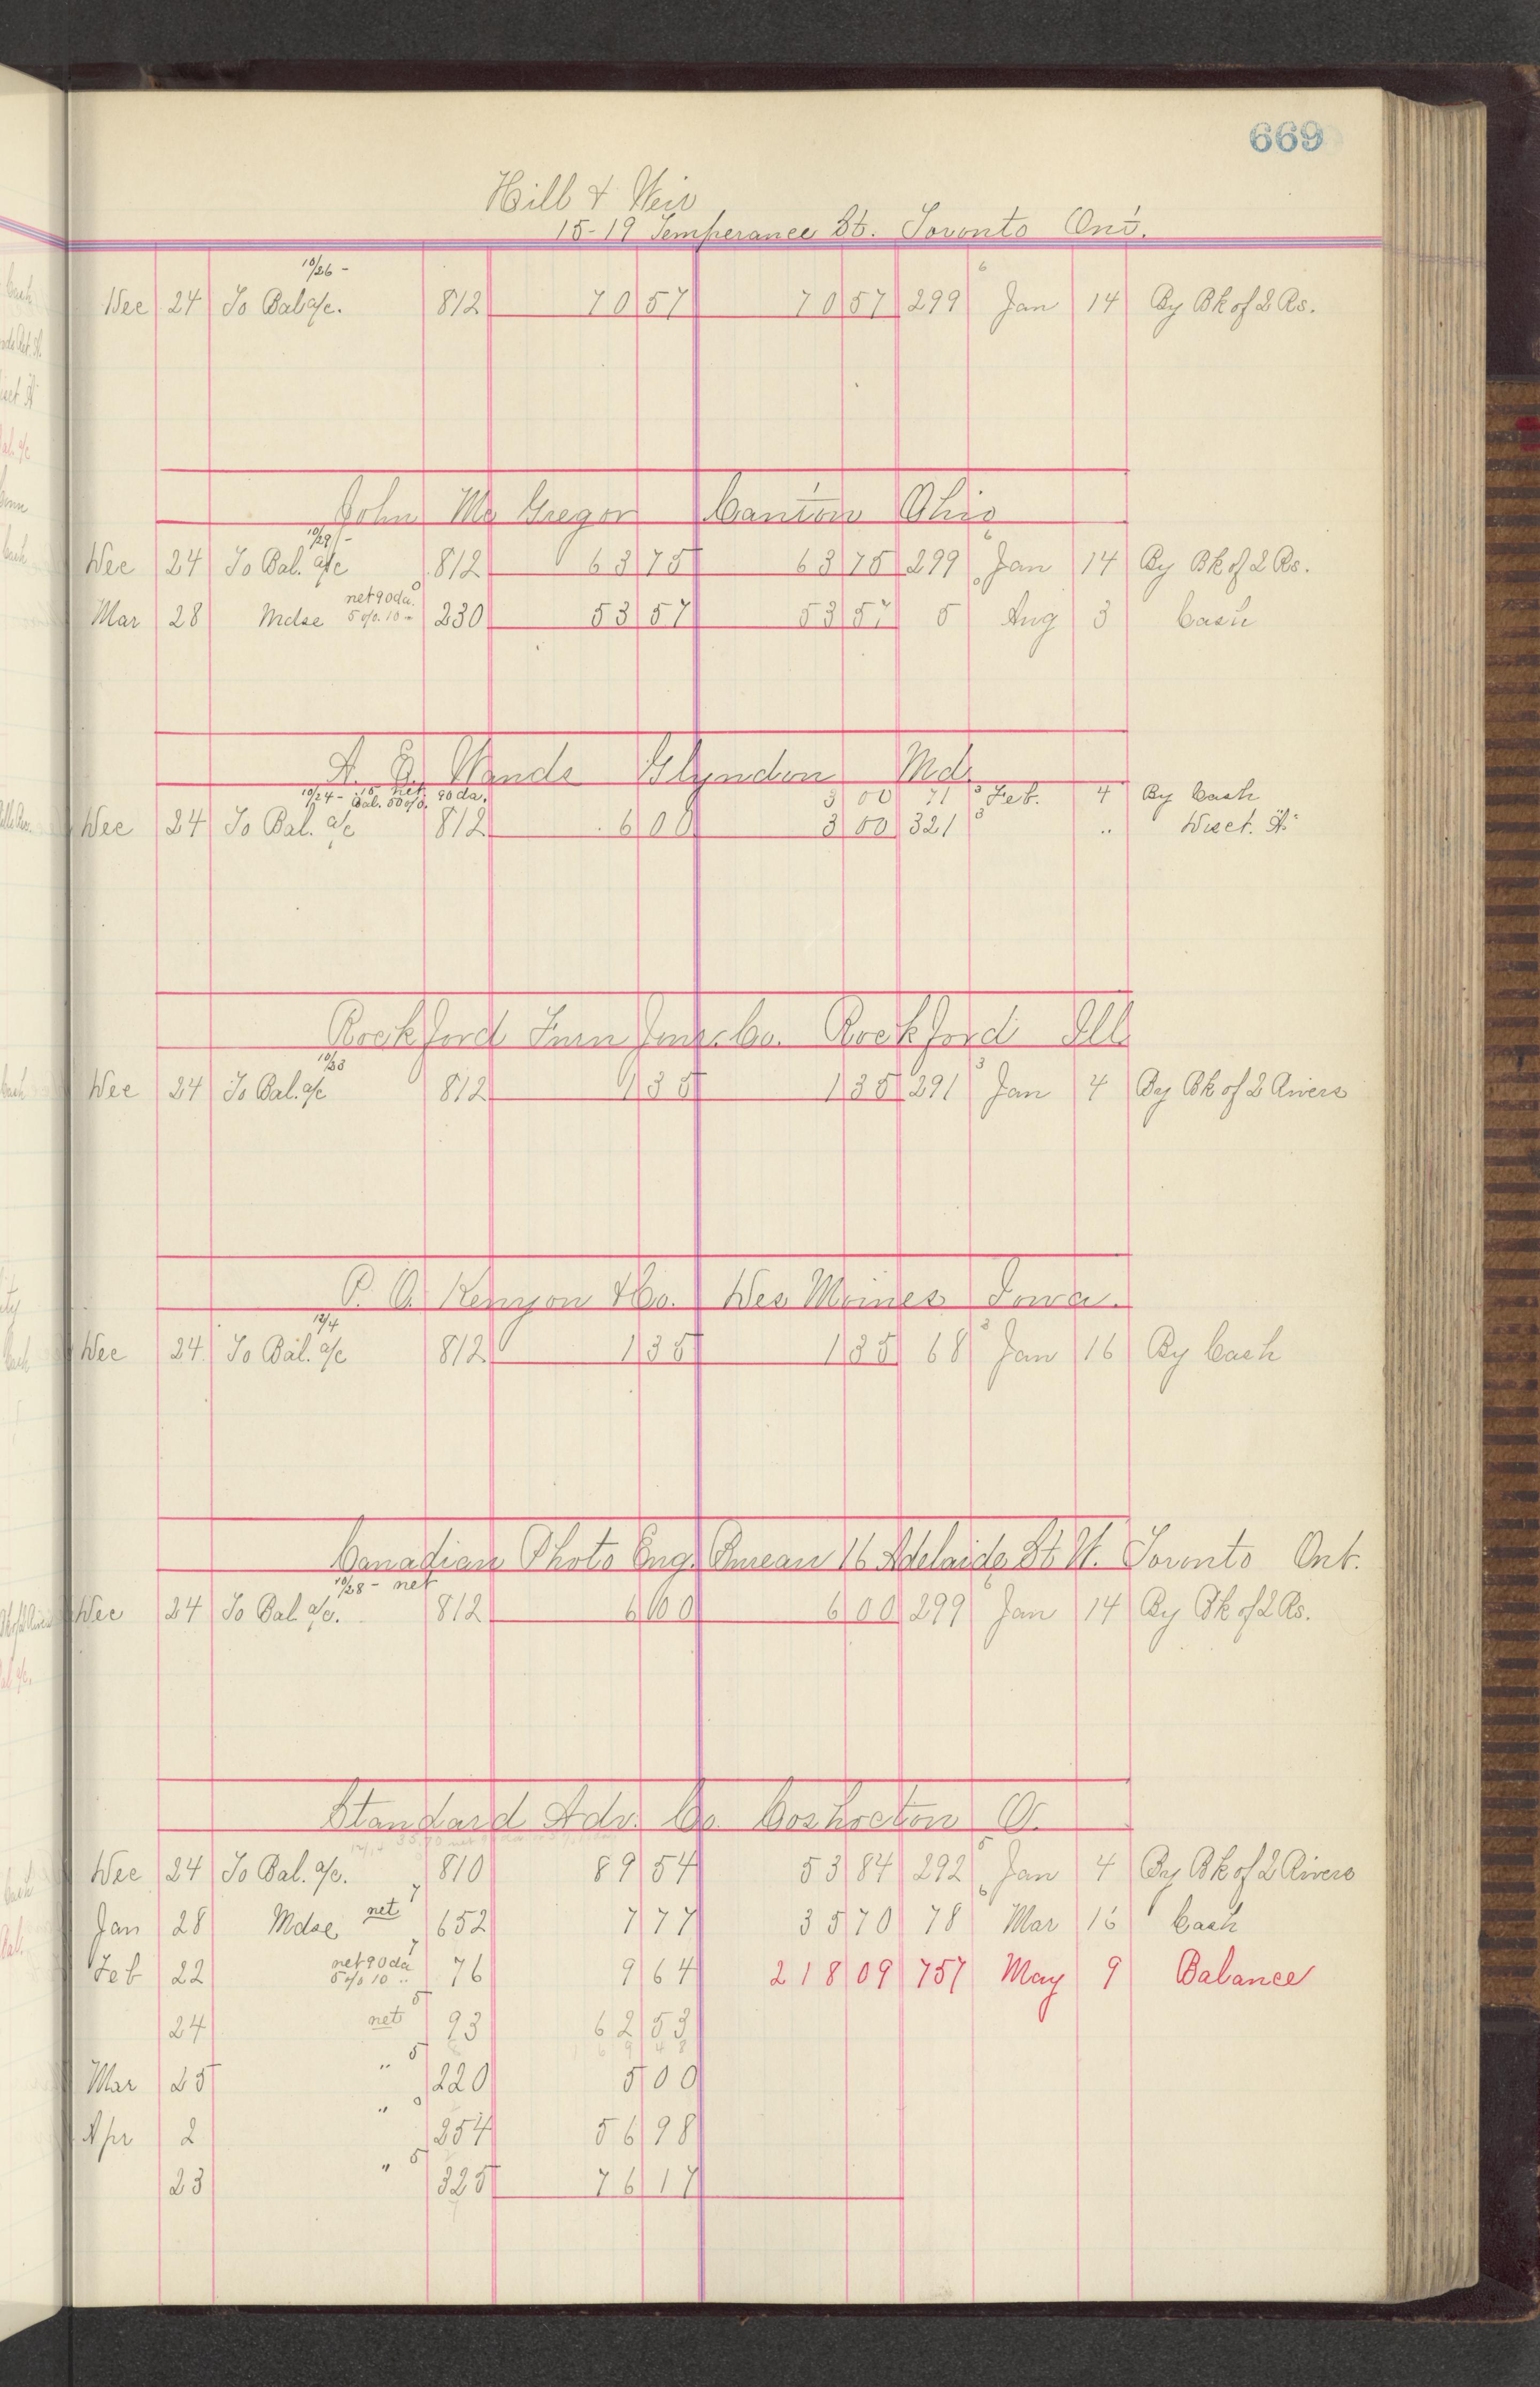 669
Hill & Weir
15-19 Temperance St. Toronto Ont.
10/26 - 6
Dec 24 To Bal a/c. 812 70 57 70 57 299 Jan 14 By Bk of 2 Rs.
John Mc Gregor Canton Ohio
10/29 - 6
Dec 24 To Bal. a/c 812 63 75 63 75 299 Jan 14 By Bk of 2 Rs.
net 90 da.
Mar 28 Mdse 5 o/o. 10 " 230 53 57 53 57 5 Aug 3 Cash
Glyndon Md.
10/24 - net 90 da. 3 00 71 3 Feb. 4 By Cash
Bal. 50 o/o.
Dec 24 To Bal. a/c 812 6 00 3 00 321 3 " Disct. "A"
Rockford Furn Jour. Co. Rockford Ill
10/23 3
Dec 24 To Bal. a/c 812 1 35 1 35 291 Jan 4 By Bk of 2 Rivers
P. O. Kenyon & Co. Des Moines Iowa.
12/4 3
Dec 24 To Bal. a/c 812 1 35 1 35 68 Jan 16 By Cash
Canadian Photo Eng. Bureau 16 Adelaide St W. Toronto Ont.
10/28 - net 6
Dec 24 To Bal a/c. 812 6 00 6 00 299 Jan 14 By Bk of 2 Rs.
Standard Adv. Co. Coshocton O.
Dec 24 To Bal. a/c. 810 89 54 53 84 292 5 Jan 4 By Bk of 2 Rivers
Jan 28 Mdse net 7 652 7 77 35 70 78 6 Mar 16 Cash
net 90 da 7
Feb 22 5 o/o 10 " 76 9 64 218 09 757 May 9 Balance
24 net 5 93 62 53
1 69 48
Mar 25 " 5 220 5 00
Apr 2 " 254 56 98
23 " 5 325 76 17